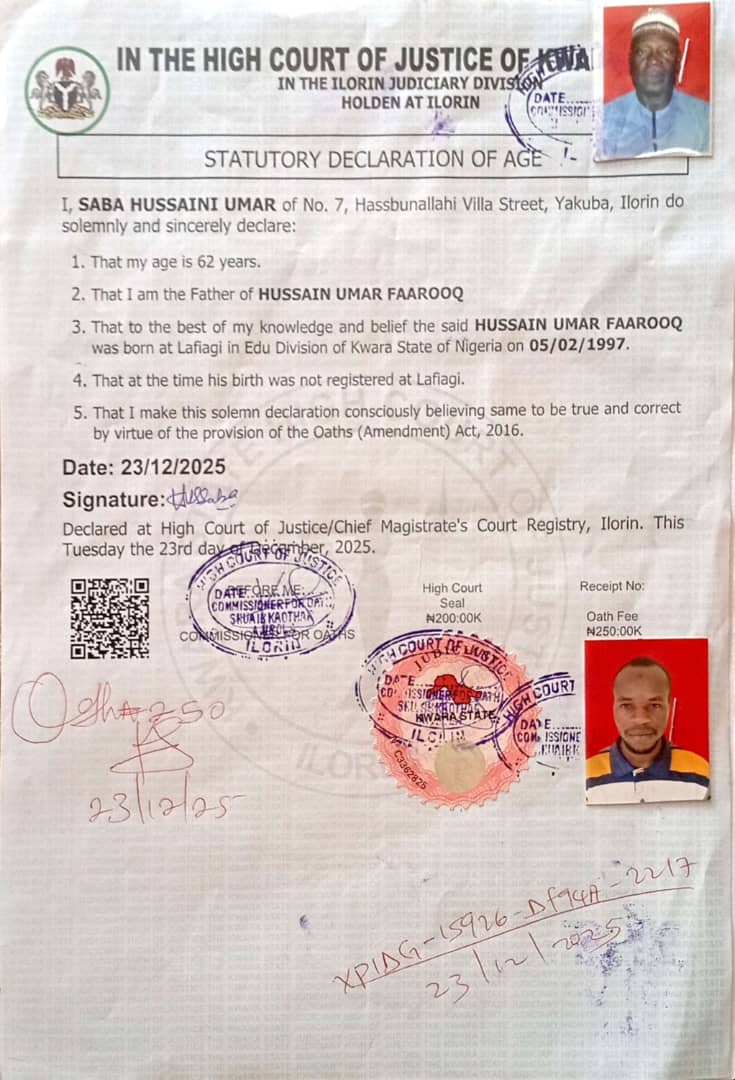 IN THE HIGH COURT OF JUSTICE OF KWA
IN THE ILORIN JUDICIARY DIVISION
HOLDEN AT ILORIN
HIGH CO
DATE
COMMISSION
STATUTORY DECLARATION OF AGE
I, SABA HUSSAINI UMAR of No. 7, Hassbunallahi Villa Street, Yakuba, Ilorin do
solemnly and sincerely declare:
1. That my age is 62 years.
2. That I am the Father of HUSSAIN UMAR FAAROOQ
3. That to the best of my knowledge and belief the said HUSSAIN UMAR FAAROOQ
was born at Lafiagi in Edu Division of Kwara State of Nigeria on 05/02/1997.
4. That at the time his birth was not registered at Lafiagi.
5. That I make this solemn declaration consciously believing same to be true and correct
by virtue of the provision of the Oaths (Amendment) Act, 2016.
Date: 23/12/2025
Signature: HUSsaba
Declared at High Court of Justice/Chief Magistrate's Court Registry, Ilorin. This
Tuesday the 23rd day of December, 2025.
HIGH COURT OF JUSTICE
BEFORE ME:
DATE
COMMISSIONER FOR OATH
SHUAIB KAOTHAR
ILORIN
COMMISSIONER FOR OATHS
High Court
Seal
₦200:00K
Receipt No:
Oath Fee
₦250:00K
HIGH COURT OF JUSTICE
DATE
COMMISSIONER FOR OATH
KWARA STATE
ILORIN
C3362825
HIGH COURT
DATE
COMMISSIONE
SHUAIB K
250
23/12/25
XPIDG-15926-Df94A-2217
23/12/2025